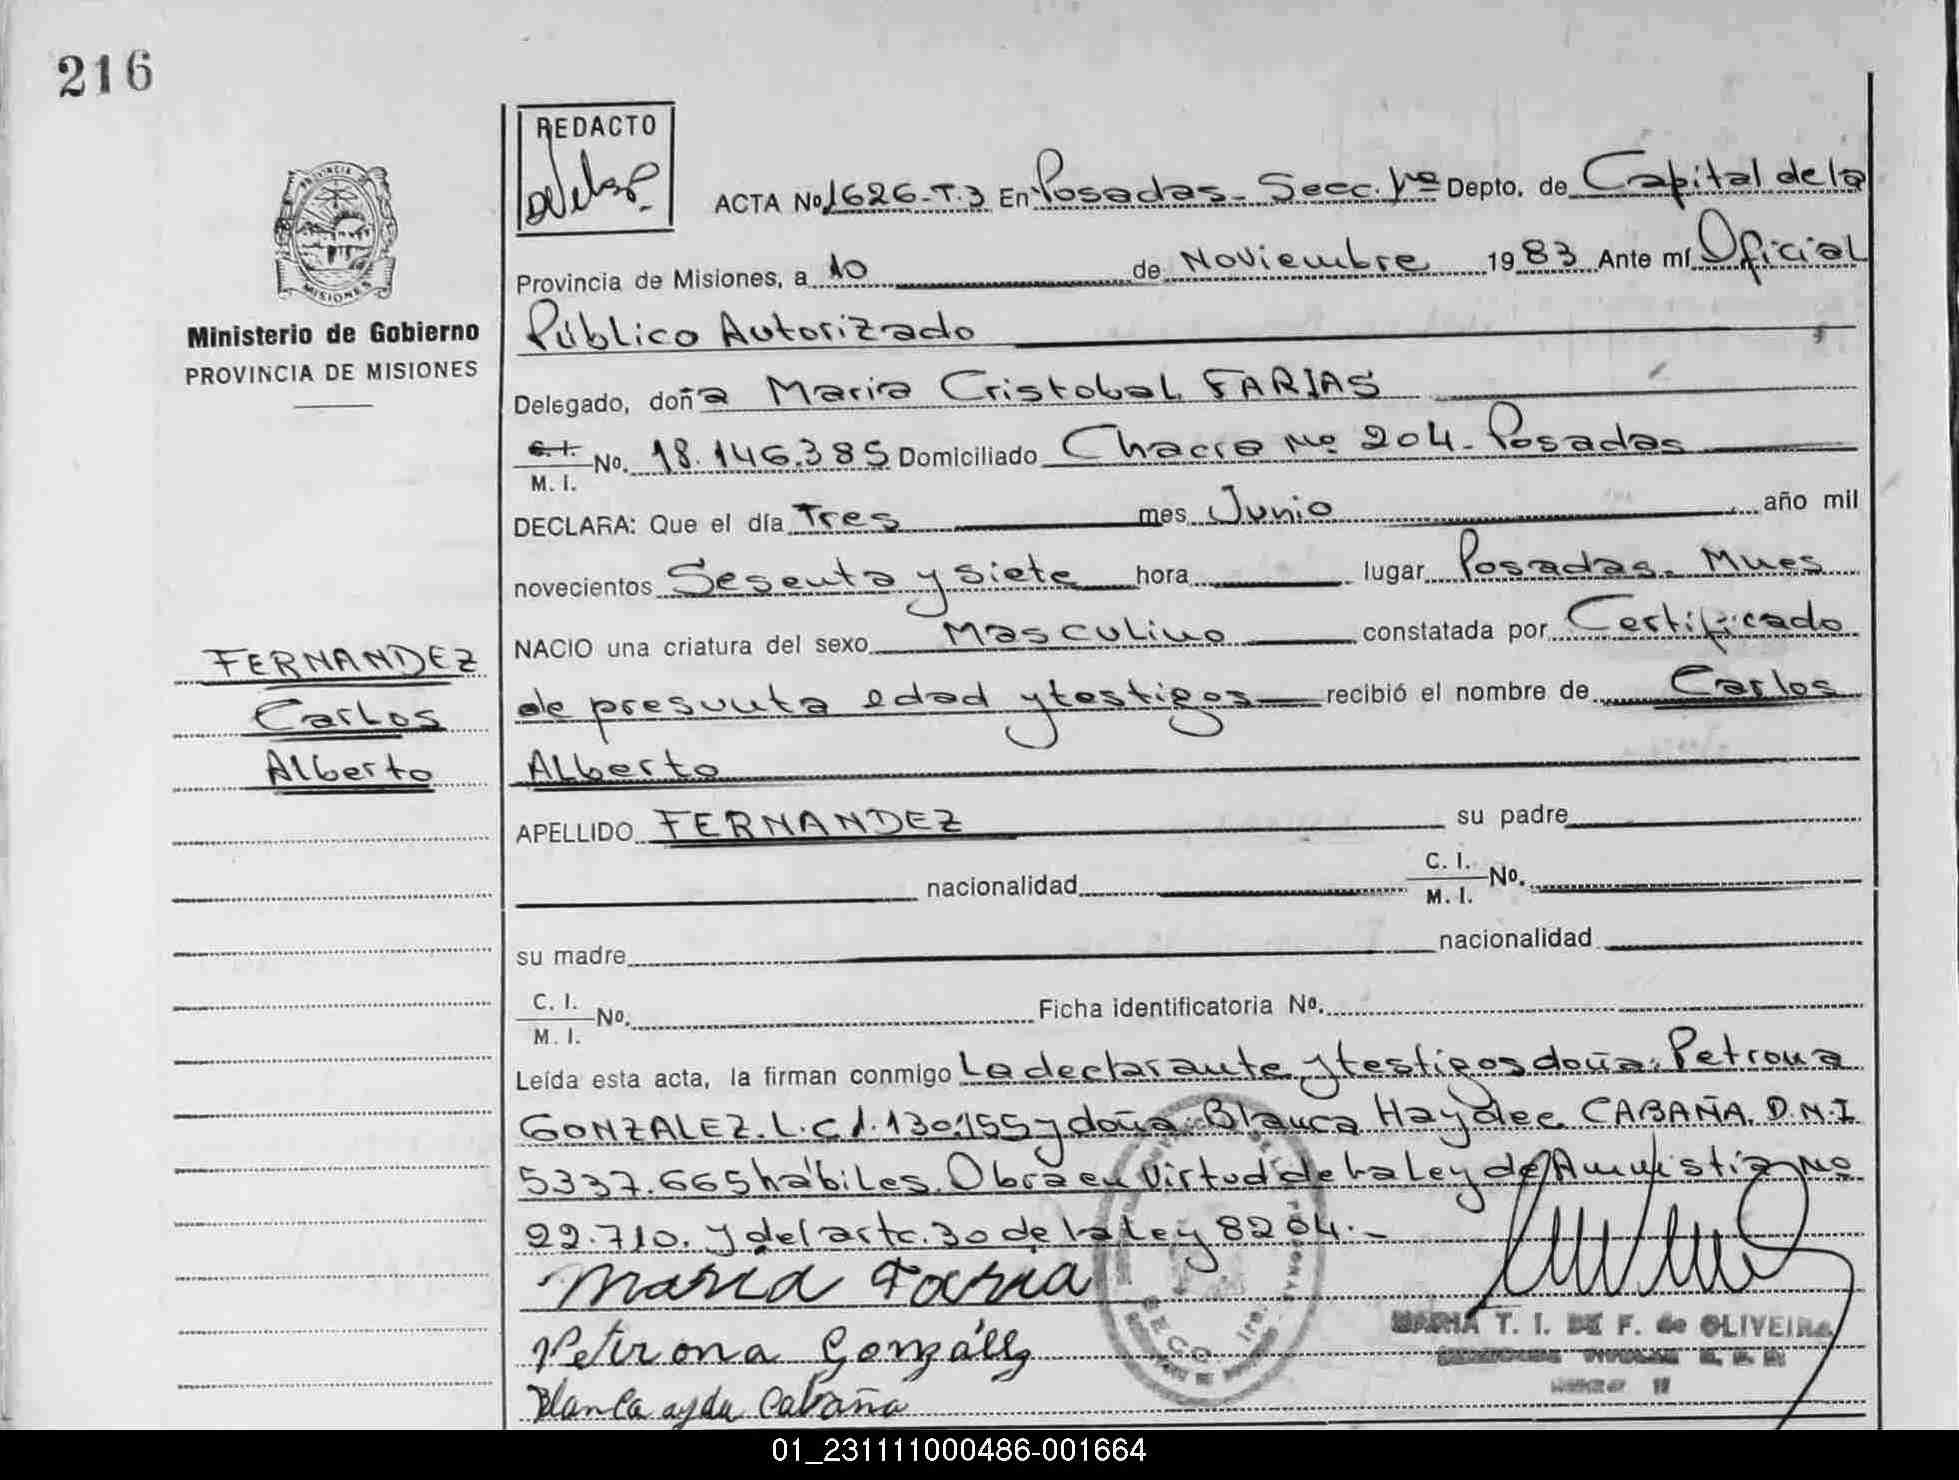 216
REDACTO
ACTA No 1626-T.3 En Posadas - Secc. 1ra Depto. de Capital de la
Provincia de Misiones, a 10 de Noviembre 1983 Ante mí Oficial
Público Autorizado
Delegado, doña Maria Cristobal FARIAS
C.I. M. I. No. 18.146.385 Domiciliado Chacra No 204 - Posadas
DECLARA: Que el día Tres mes Junio año mil
novecientos Sesenta y siete hora lugar Posadas - Mnes
NACIO una criatura del sexo Masculino constatada por Certificado
de presunta edad y testigos recibió el nombre de Carlos
Alberto
APELLIDO FERNANDEZ su padre
nacionalidad C. I. M. I. No.
su madre nacionalidad
C. I. M. I. No. Ficha identificatoria No.
Leída esta acta, la firman conmigo La declarante y testigos doña: Petrona
GONZALEZ. L.C 1.130.155 y doña: Blanca Haydee CABAÑA. D.N.I
5337.665 hábiles. Obra en virtud de la Ley de Amnistia No
22.710. y del artc. 30 de la Ley 8204.-
Maria Faria
Petrona Gonzáles
Blanca ayde Cabaña
MARIA T. I. DE F. de OLIVEIRA
PROVINCIA
MISIONES
Ministerio de Gobierno
PROVINCIA DE MISIONES
FERNANDEZ
Carlos
Alberto
01_231111000486-001664